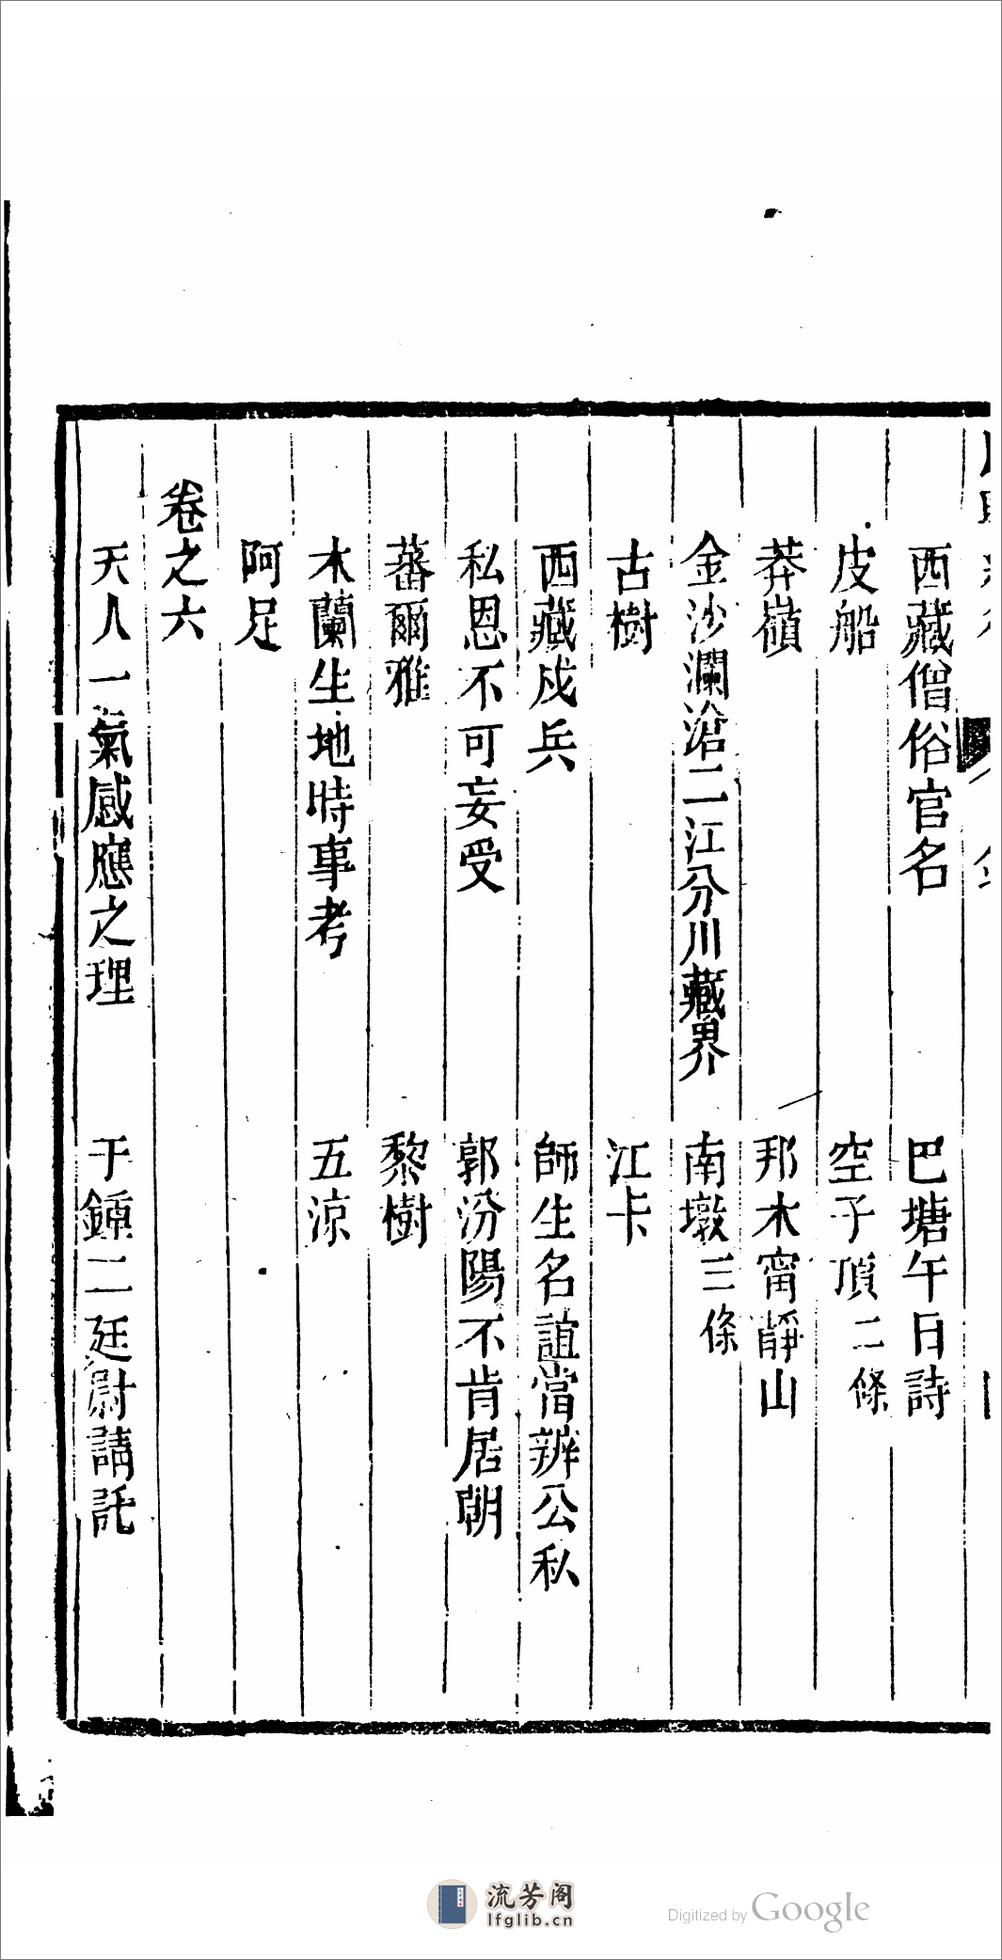 西藏僧俗官名　巴塘午日詩
皮船　空子頂二條
莽嶺　邦木甯靜山
金沙瀾滄二江分川藏界　南墩三條
古樹　江卡
西藏戍兵　師生名誼當辨公私
私恩不可妄受　郭汾陽不肯居朝
蕃爾雅　黎樹
木蘭生地時事考　五涼
阿足
卷之六
天人一氣感應之理　于鍾二廷尉請託
流芳阁
lfglib.cn
Digitized by Google